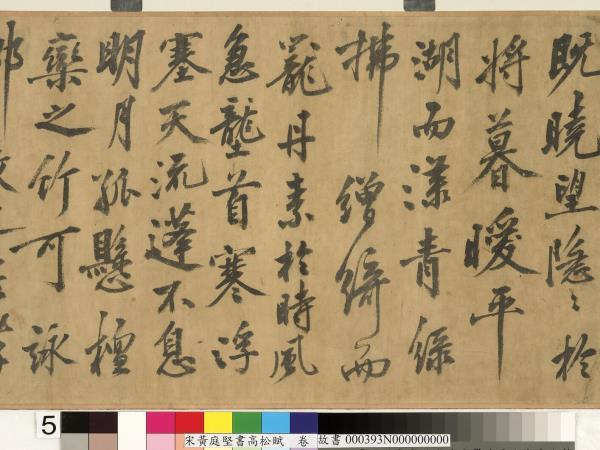 既曉望隱〻於
將暮曖平
湖而漾青綠
拂繒綺而
籠丹素於時風
急壟首寒浮
塞天流蓬不息
明月孤懸檀
欒之竹可詠
5
宋黃庭堅書高松賦 卷 故書 000393N000000000